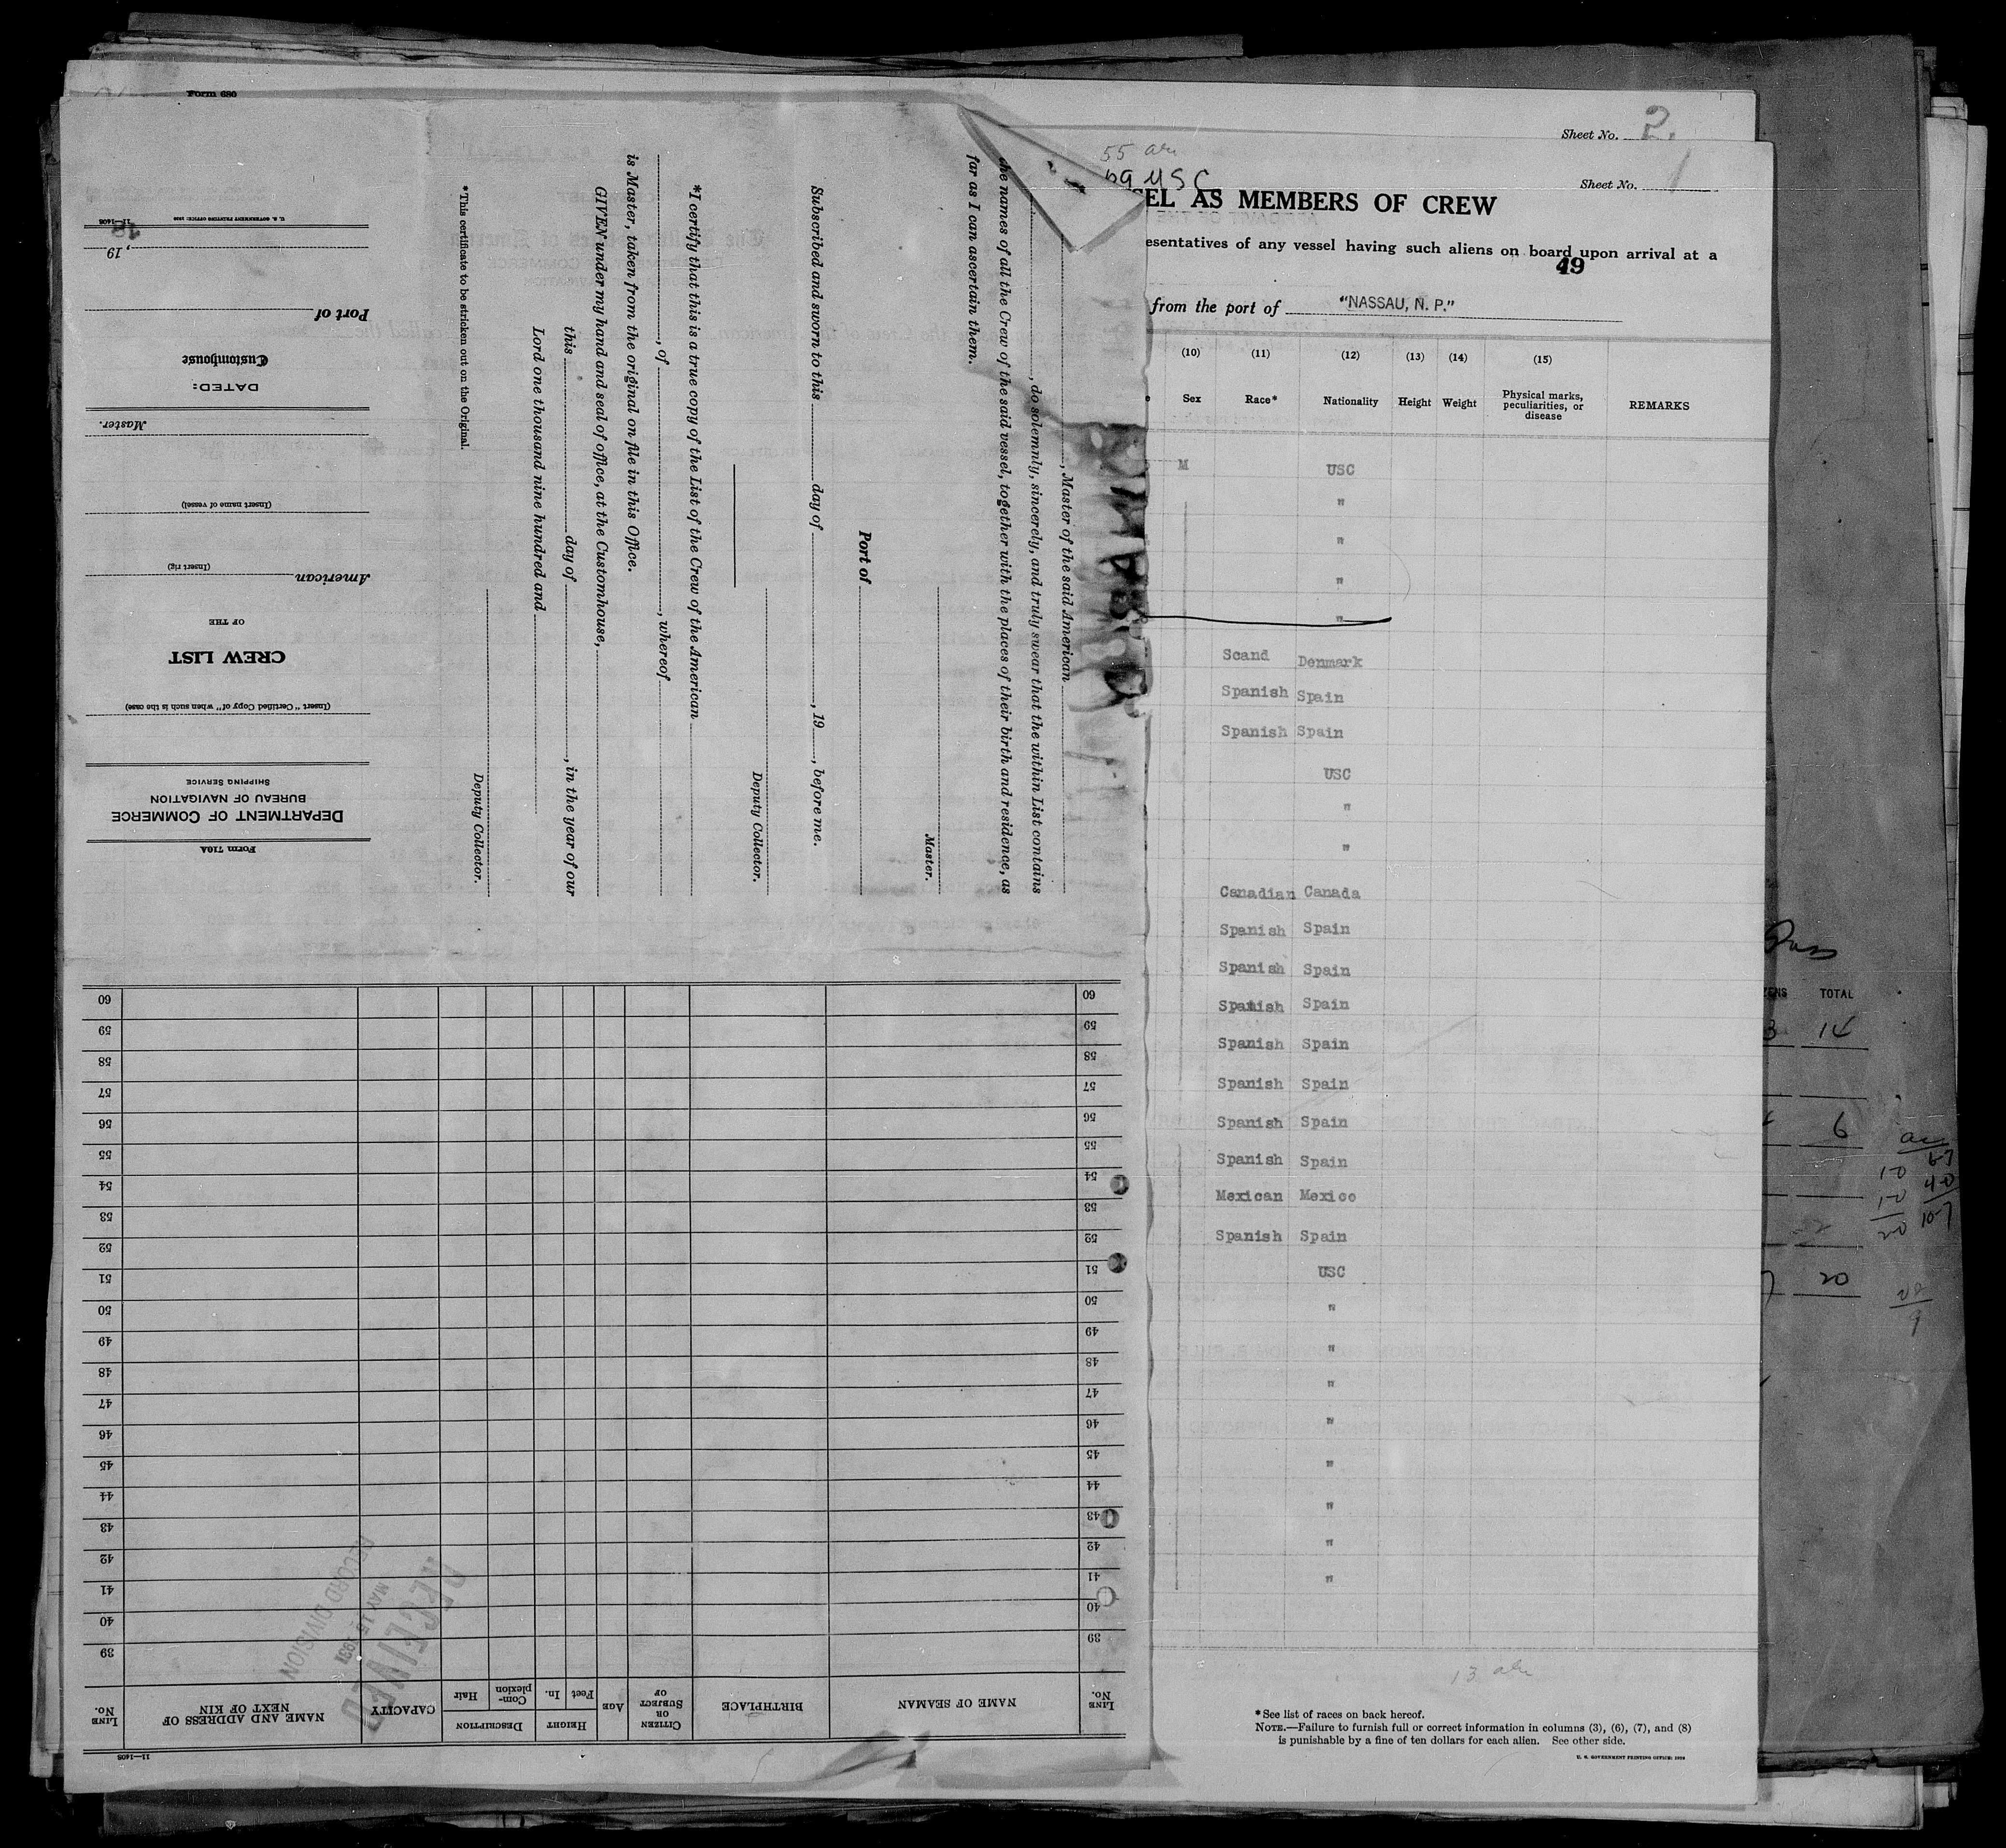 Form 680
Sheet No. 2.
Sheet No. 1
55
USC
SEL AS MEMBERS OF CREW
esentatives of any vessel having such aliens on board upon arrival at a
49
from the port of "NASSAU, N. P."
(10) (11) (12) (13) (14) (15)
Sex Race* Nationality Height Weight Physical marks, peculiarities, or disease REMARKS
M USC
"
"
"
"
Scand Denmark
Spanish Spain
Spanish Spain
USC
"
"
Canadian Canada
Spanish Spain
Spanish Spain
Spanish Spain
Spanish Spain
Spanish Spain
Spanish Spain
Spanish Spain
Mexican Mexico
Spanish Spain
USC
"
"
"
"
"
"
"
"
13
*See list of races on back hereof.
NOTE.—Failure to furnish full or correct information in columns (3), (6), (7), and (8)
is punishable by a fine of ten dollars for each alien. See other side.
U. S. GOVERNMENT PRINTING OFFICE
, Master of the said American
, do solemnly, sincerely, and truly swear that the within List contains
the names of all the Crew of the said vessel, together with the places of their birth and residence, as
far as I can ascertain them.
Master.
Port of
Subscribed and sworn to this day of , 19 , before me.
Deputy Collector.
*I certify that this is a true copy of the List of the Crew of the American
, of , whereof
is Master, taken from the original on file in this Office.
GIVEN under my hand and seal of office, at the Customhouse,
this day of , in the year of our
Lord one thousand nine hundred and
Deputy Collector.
*This certificate to be stricken out on the Original.
Form 710A
DEPARTMENT OF COMMERCE
BUREAU OF NAVIGATION
SHIPPING SERVICE
(Insert "Certified Copy of" when such is the case)
CREW LIST
OF THE
American
(Insert rig)
(Insert name of vessel)
Master.
DATED:
Customhouse
Port of
, 19
U. S. GOVERNMENT PRINTING OFFICE
11—1408
11—1408
LINE No. NAME OF SEAMAN BIRTHPLACE CITIZEN OR SUBJECT OF AGE HEIGHT Feet In. DESCRIPTION Complexion Hair CAPACITY NAME AND ADDRESS OF NEXT OF KIN LINE No.
39 39
40 40
41 41
42 42
43 43
44 44
45 45
46 46
47 47
48 48
49 49
50 50
51 51
52 52
53 53
54 54
55 55
56 56
57 57
58 58
59 59
60 60
RECEIVED
MAY 15 1931
RECORD DIVISION
TOTAL
3 14
6
20